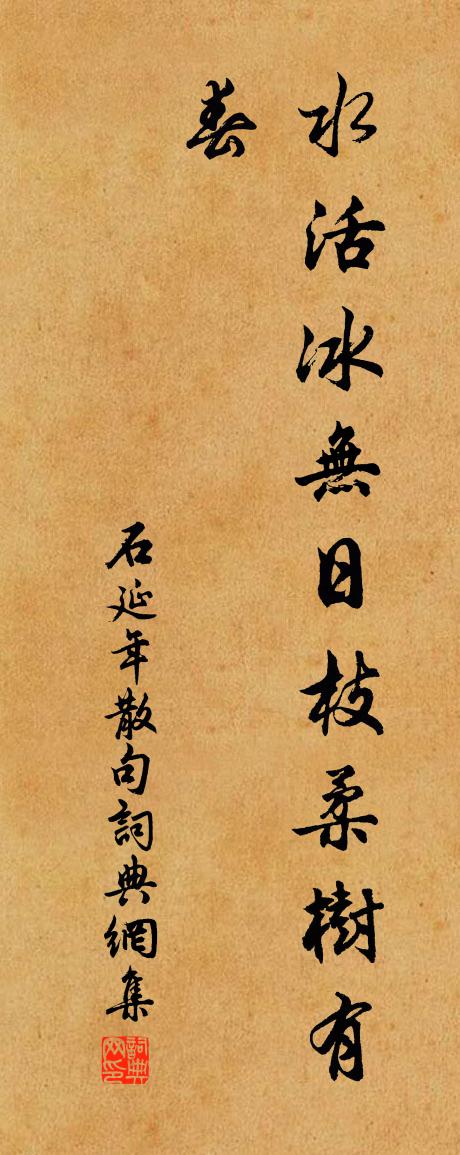 水活冰無日枝柔樹有
春
石延年散句詞典網集
詞典
网印